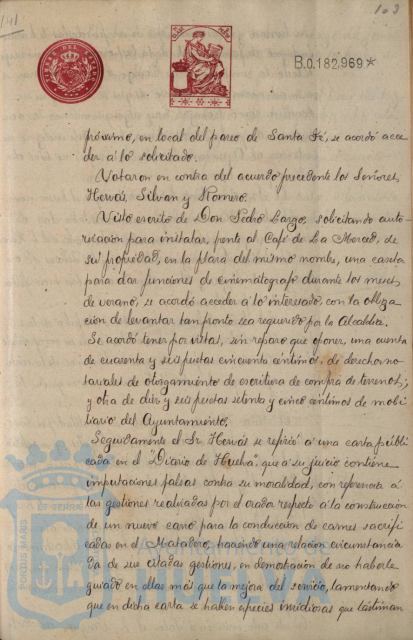 141
103
B.0.182,969*
próximo, en local del paseo de Santa Fé, se acordó acce
der á lo solicitado.
Votaron en contra del acuerdo precedente los Señores
Hervás, Silvan y Romero.
Visto escrito de Don Pedro Largo, solicitando auto-
rización para instalar, frente al Café de La Merced, de
su propiedad, en la plaza del mismo nombre, una caseta
para dar funciones de cinematógrafo durante los meses
de verano, se acordó acceder á lo interesado con la obliga
cion de levantar tan pronto sea requerido por la Alcaldia.
Se acordó tener por vistas, sin reparo que oponer, una cuenta
de cuarenta y seis pesetas cincuenta centimos, de derechos no-
tariales de otorgamiento de escritura de compra de terrenos;
y otra de diez y seis pesetas setenta y cinco centimos de mobi
liario del Ayuntamiento.
Seguidamente el Sr. Hervás se refirió á una carta públi
cada en el "Diario de Huelva", que á su juicio contiene
imputaciones falsas contra su moralidad, con referencia á
las gestiones realizadas por el orador respecto á la construccion
de un nuevo carro para la conduccion de carnes sacrifi
cadas en el Matadero, haciendo una relación circunstancia
da de sus citadas gestiones, en demostracion de no haberle
guiado en ellas más que la mejora del servicio, lamentando
que en dicha carta se hallen especies insidiosas que lastiman